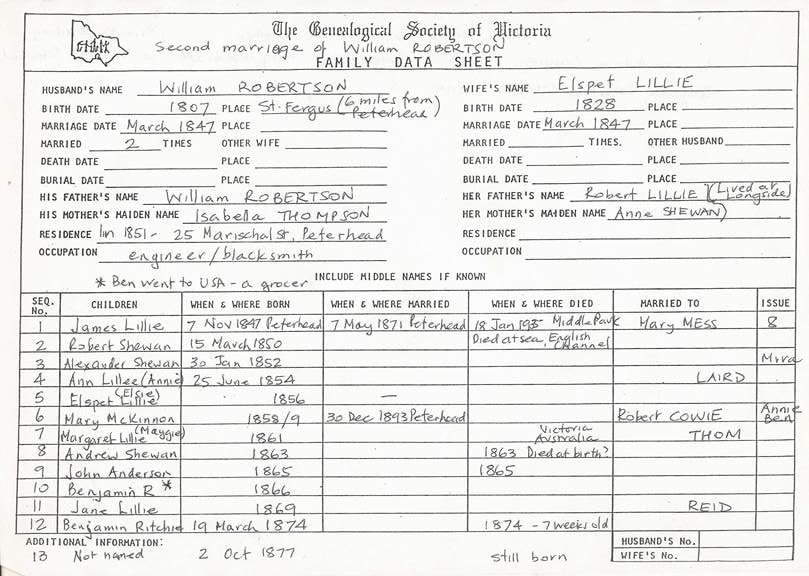 The Genealogical Society of Victoria
Second marriage of William ROBERTSON
FAMILY DATA SHEET
HUSBAND'S NAME William ROBERTSON WIFE'S NAME Elspet LILLIE
BIRTH DATE 1807 PLACE St. Fergus (6 miles from Peterhead) BIRTH DATE 1828 PLACE
MARRIAGE DATE March 1847 PLACE MARRIAGE DATE March 1847 PLACE
MARRIED 2 TIMES OTHER WIFE MARRIED TIMES. OTHER HUSBAND
DEATH DATE PLACE DEATH DATE PLACE
BURIAL DATE PLACE BURIAL DATE PLACE
HIS FATHER'S NAME William ROBERTSON HER FATHER'S NAME Robert LILLIE (Lived at Longside)
HIS MOTHER'S MAIDEN NAME Isabella THOMPSON HER MOTHER'S MAIDEN NAME Anne SHEWAN)
RESIDENCE In 1851 - 25 Marischal St, Peterhead RESIDENCE
OCCUPATION engineer/blacksmith OCCUPATION
* Ben went to USA - a grocer INCLUDE MIDDLE NAMES IF KNOWN
SEQ. No. CHILDREN WHEN & WHERE BORN WHEN & WHERE MARRIED WHEN & WHERE DIED MARRIED TO ISSUE
1 James Lillie 7 Nov 1847 Peterhead 7 May 1871 Peterhead 18 Jan Middle Park Mary MESS 8
2 Robert Shewan 15 March 1850 Died at sea, English Channel
3 Alexander Shewan 30 Jan 1852 Myra
4 Ann Lillee (Annie) 25 June 1854 LAIRD
5 Elspet Lillie (Elsie) 1856 —
6 Mary McKinnon 1858/9 30 Dec 1893 Peterhead Robert COWIE Annie Ben
7 Margaret Lillie (Maggie) 1861 Victoria Australia THOM
8 Andrew Shewan 1863 1863 Died at birth?
9 John Anderson 1865 1865
10 Benjamin R * 1866
11 Jane Lillie 1869 REID
12 Benjamin Ritchie 19 March 1874 1874 - 7 weeks old
ADDITIONAL INFORMATION: HUSBAND'S No.
13 Not named 2 Oct 1877 still born WIFE'S No.